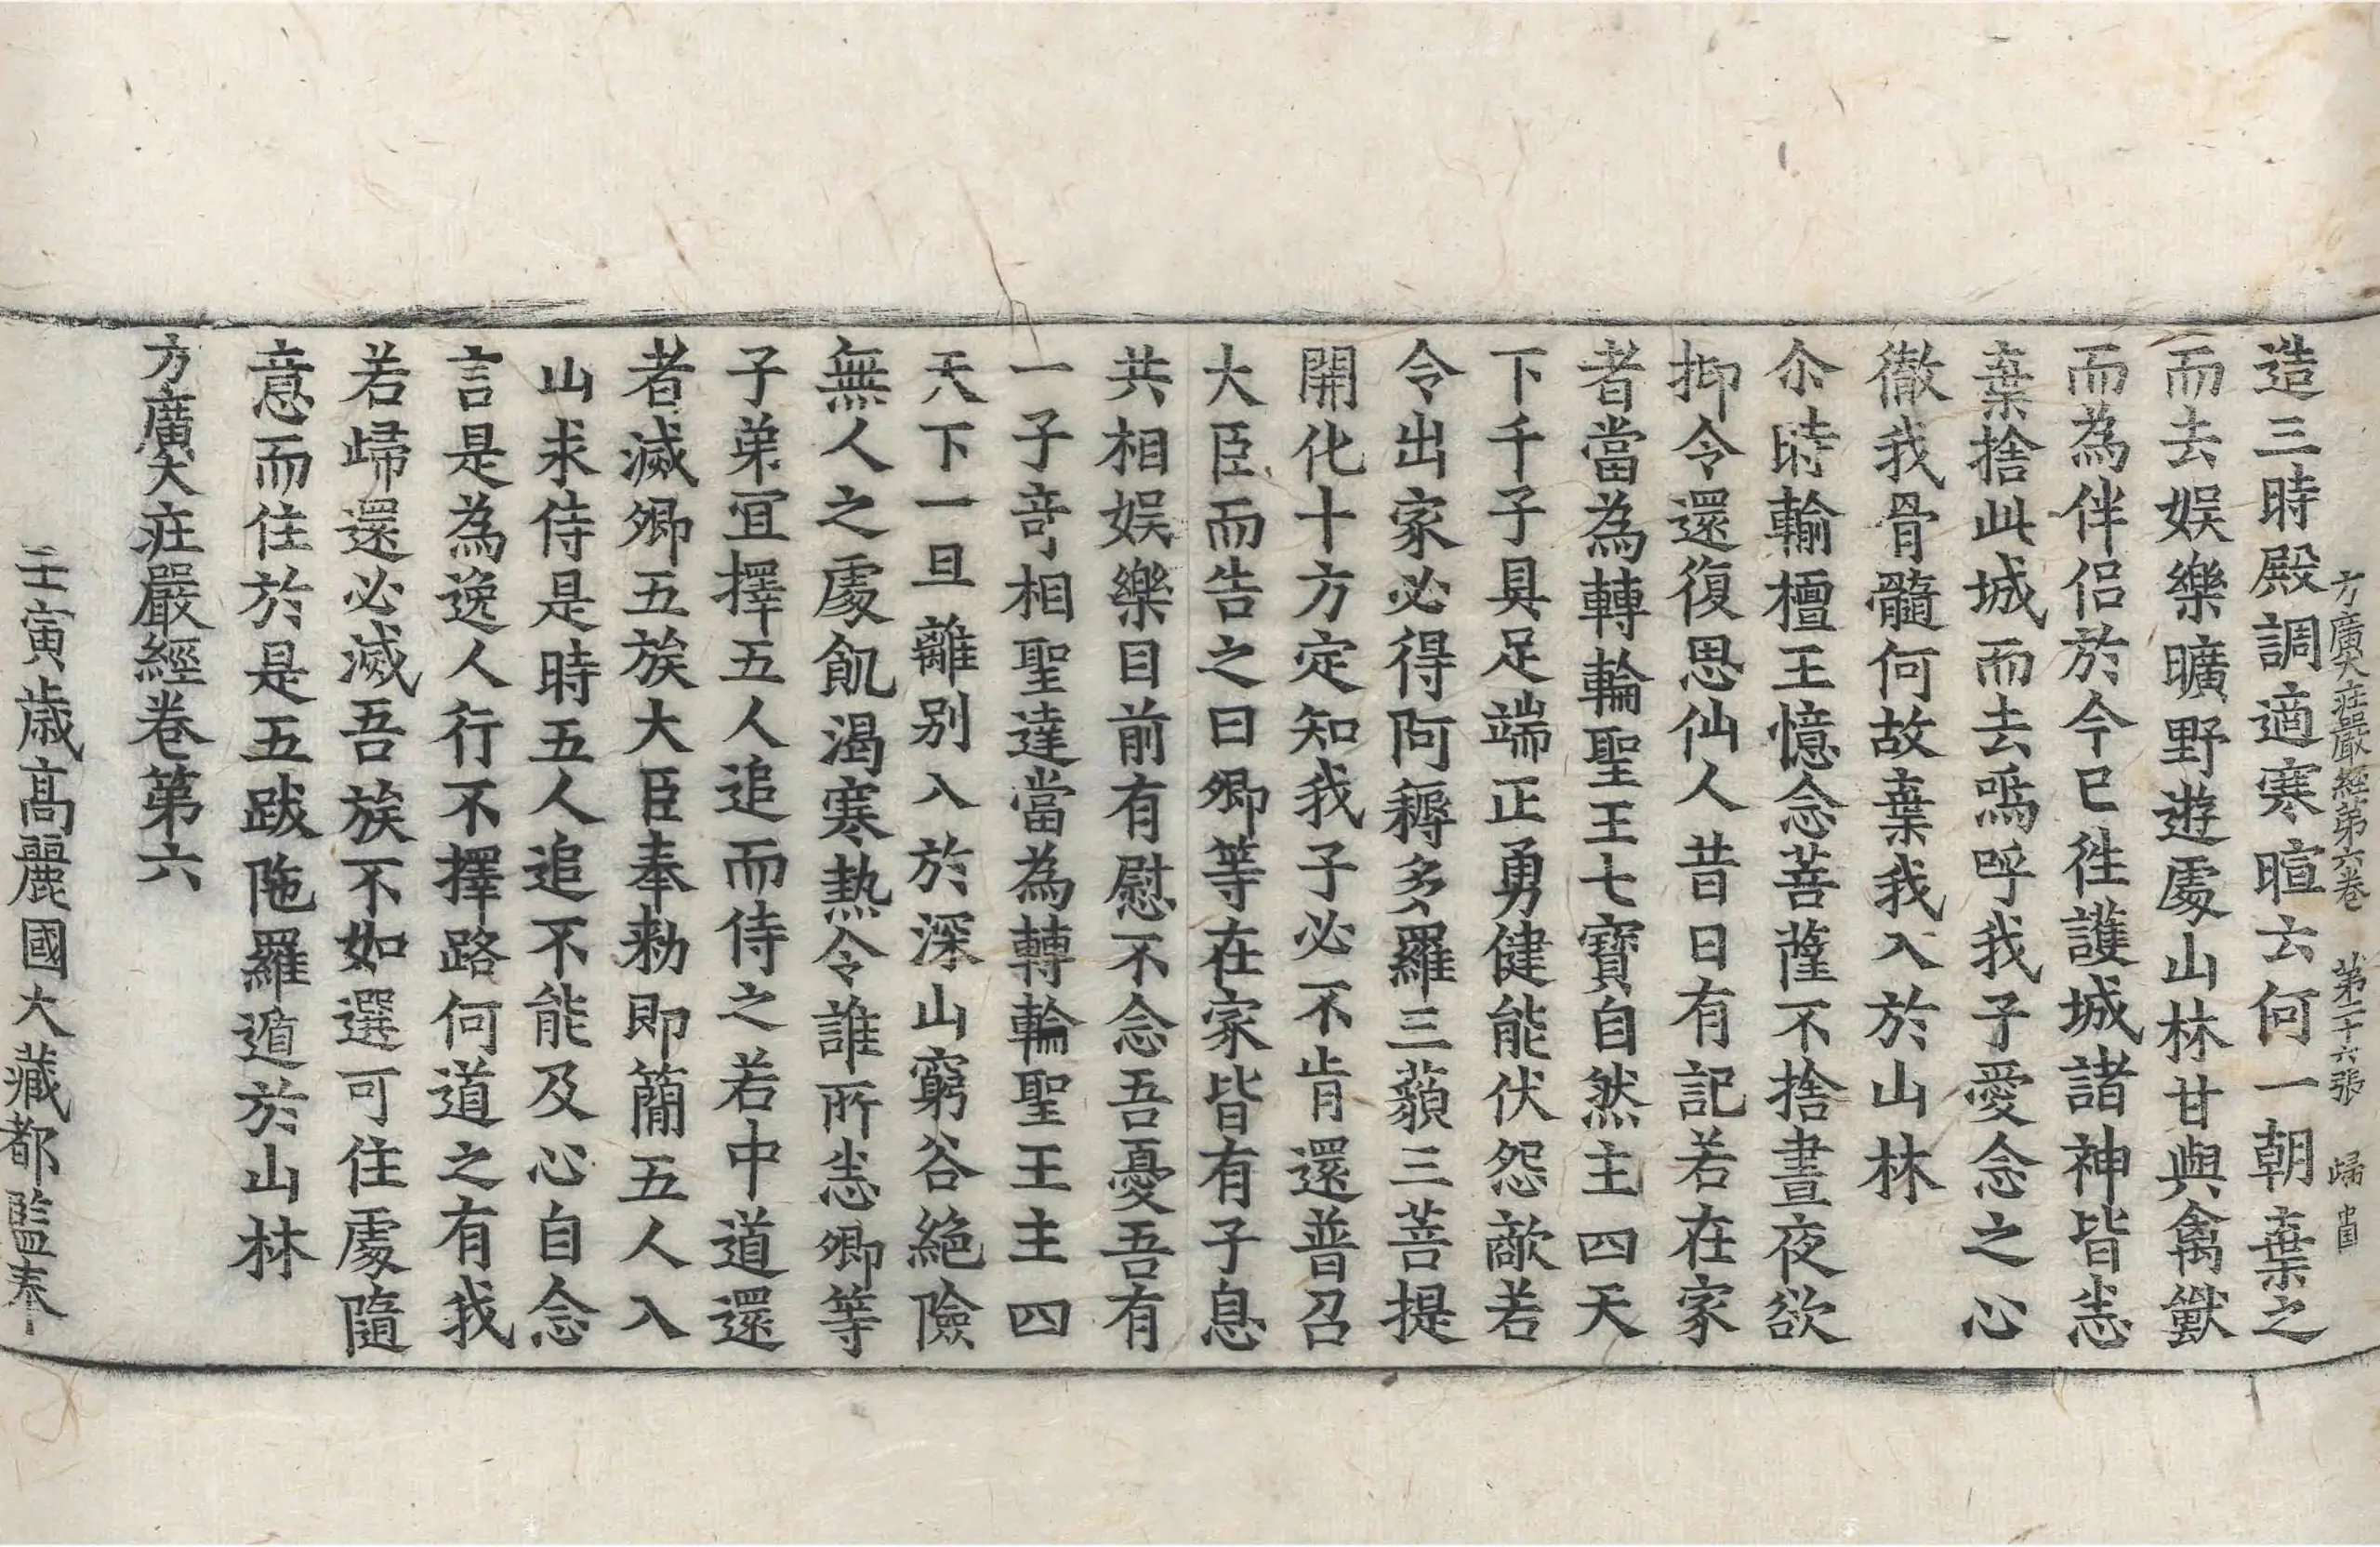 方廣大莊嚴經第六卷 第二十六張 歸
造三時殿調適寒暄云何一朝棄之
而去娛樂曠野遊處山林甘與禽獸
而為伴侶於今已徃護城諸神皆恙
棄捨此城而去嗚呼我子愛念之心
徹我骨髓何故棄我入於山林
尒時輸檀王憶念菩薩不捨晝夜欲
抑令還復思仙人昔日有記若在家
者當為轉輪聖王七寶自然主四天
下千子具足端正勇健能伏怨敵若
令出家必得阿耨多羅三藐三菩提
開化十方定知我子必不肯還普召
大臣而告之曰卿等在家皆有子息
共相娛樂目前有慰不念吾憂吾有
一子奇相聖達當為轉輪聖王主四
天下一旦離別入於深山窮谷絶險
無人之處飢渴寒熱令誰所恙卿等
子弟宜擇五人追而侍之若中道還
者滅卿五族大臣奉勑即簡五人入
山求侍是時五人追不能及心自念
言是為逸人行不擇路何道之有我
若歸還必滅吾族不如選可住處隨
意而住於是五跋陁羅遁於山林
方廣大莊嚴經卷第六
壬寅歲高麗國大藏都監奉